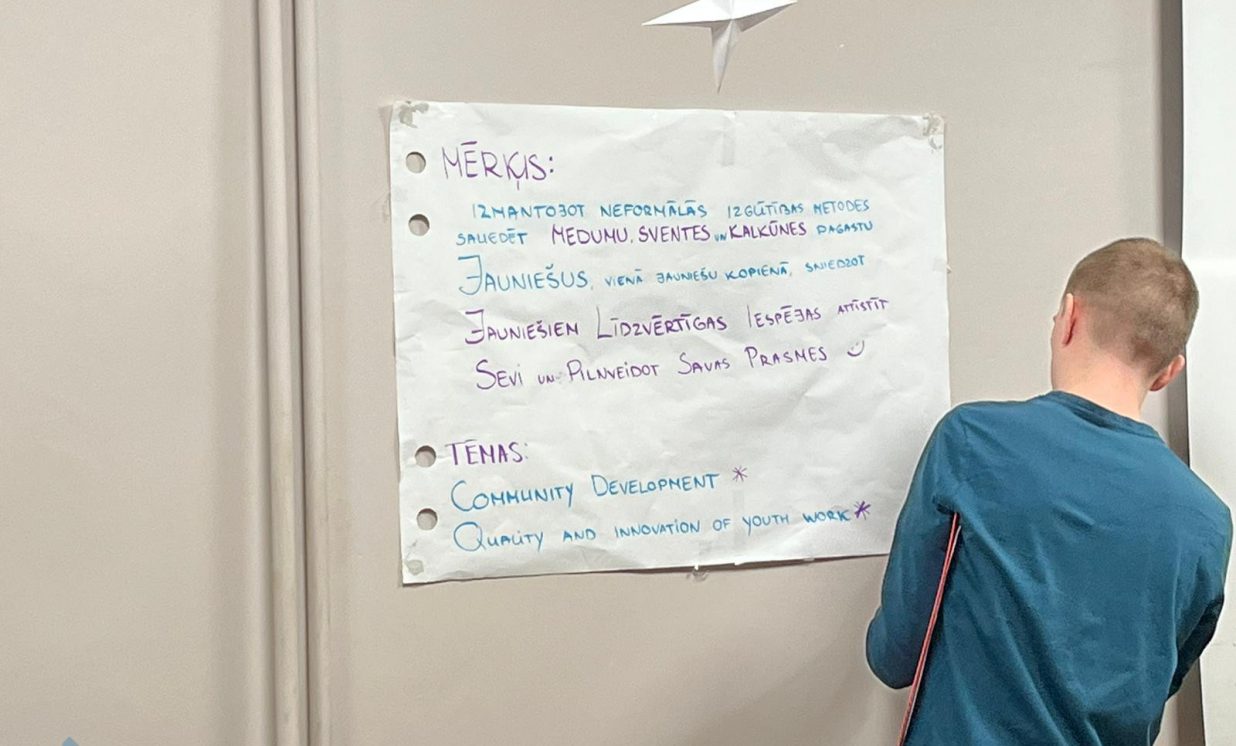 MĒRĶIS:
IZMANTOJOT NEFORMĀLĀS IZGŪTĪBAS METODES
SALIEDĒT MEDUMU, SVENTES UN KALKŪNES PAGASTU
JAUNIEŠUS, VIENĀ JAUNIEŠU KOPIENĀ, SNIEDZOT
JAUNIEŠIEM LĪDZVĒRTĪGAS IESPĒJAS ATTĪSTĪT
SEVI UN PILNVEIDOT SAVAS PRASMES
TĒMAS:
COMMUNITY DEVELOPMENT *
QUALITY AND INNOVATION OF YOUTH WORK *